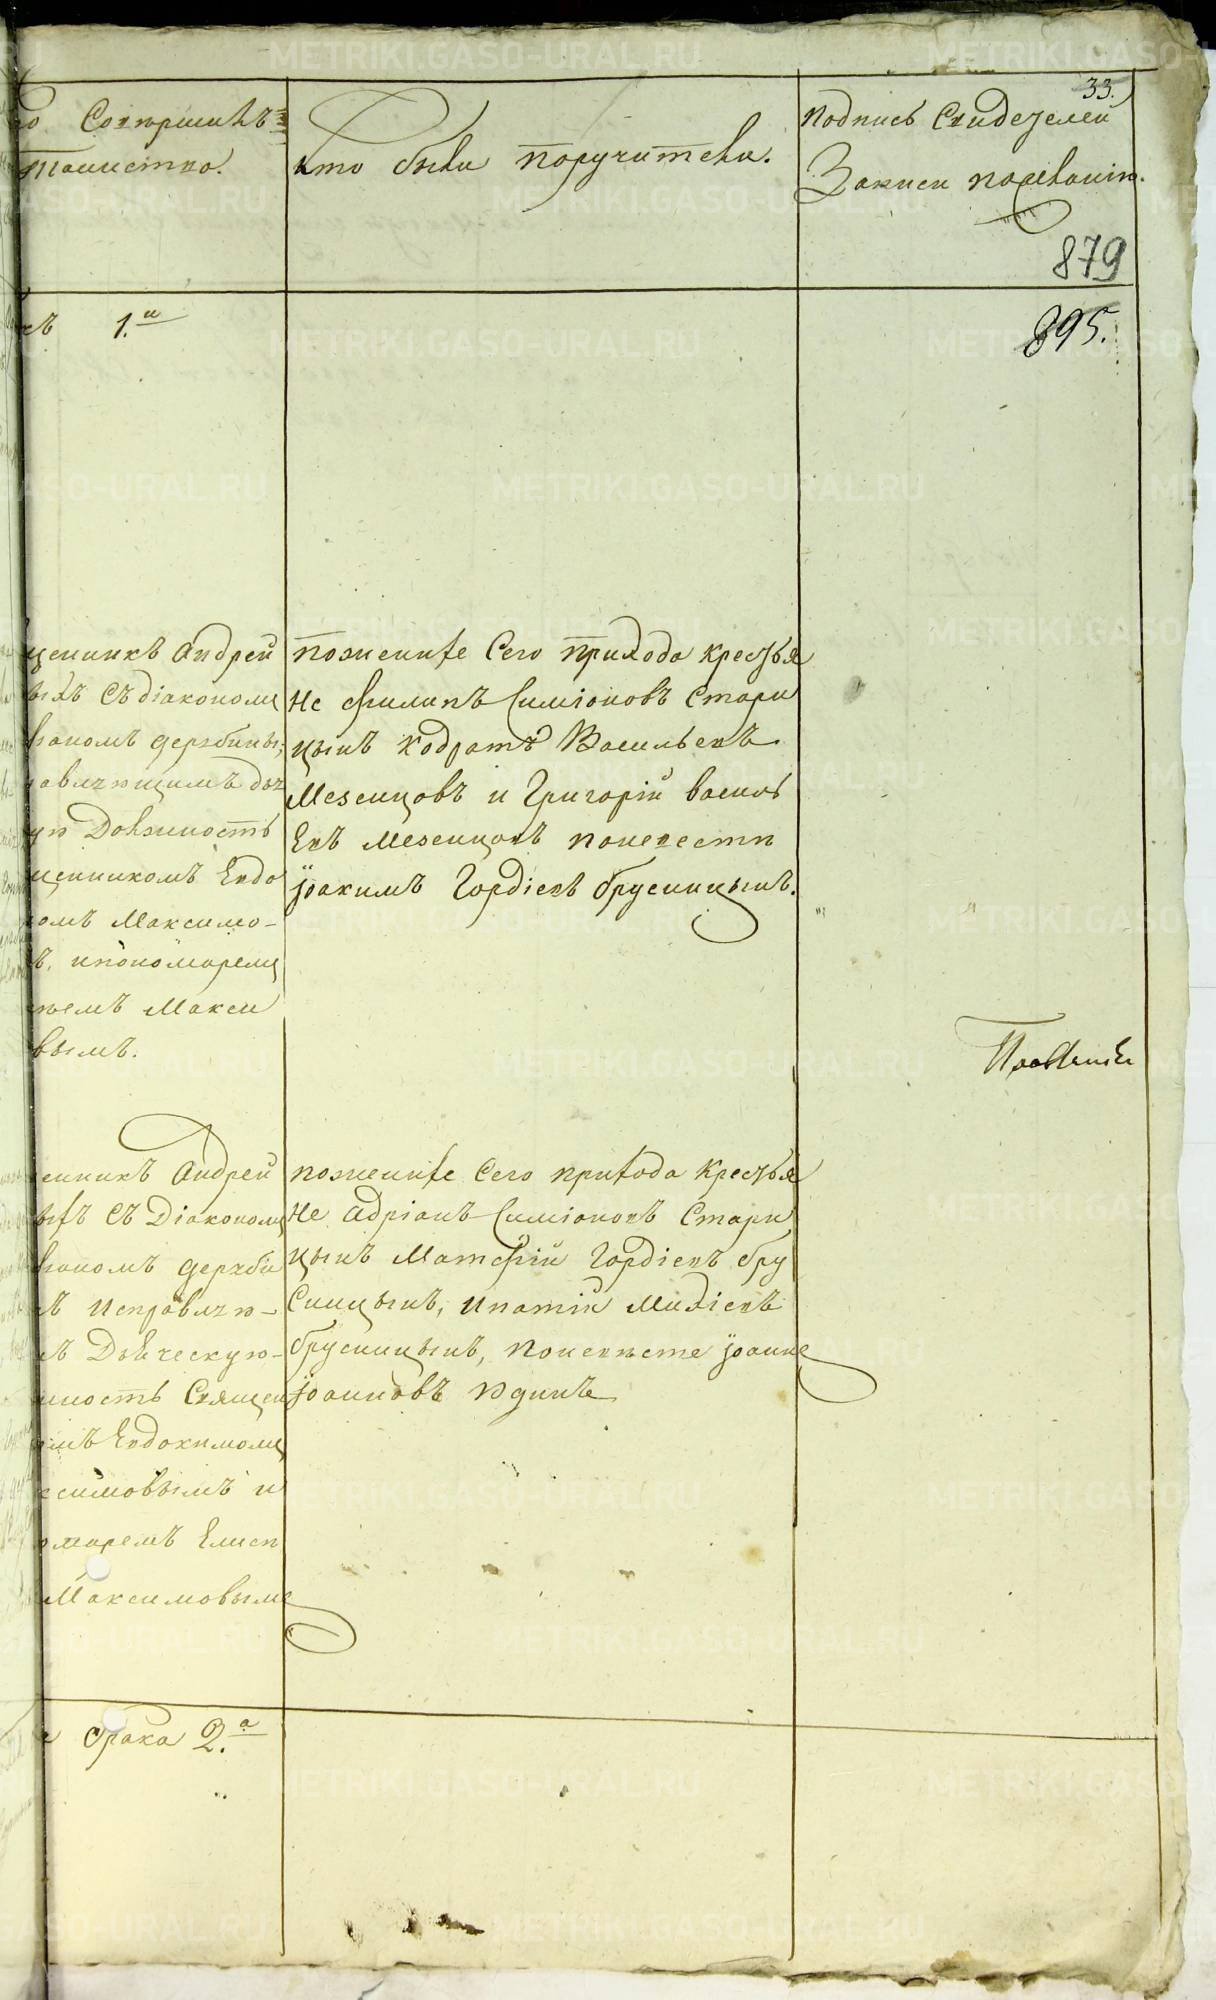 33.
Совершилъ
Таинство.
кто были поручители.
подпись свидетелей
Записи пожеланію.
879
895.
1.й
щенникъ Андрей
съ діакономъ
Должность
щенникомъ Евдо
омъ Максимо-
ъ, ипономаремъ
Макси
вымъ.
по женихе Сего прихода крестья
не Филипъ Симіоновъ Стари
цынъ Кодратъ Васильевъ
Мезенцовъ и Григорій василь
евъ Мезенцовъ поневести
іоакимъ Гордіевъ брусницынъ.
енникъ Андрей
ыхъ съ Діакономъ
ъ Исправляю-
ъ Дьяческую-
жность Священ
мъ Евдокимомъ
ксимовымъ и
омаремъ Елисе
Максимовымъ
по женихе Сего прихода крестья
не Адріанъ Симіоновъ Стари
цынъ Матфій Гордіевъ бру
сницынъ, ипатій Михіевъ
брусницынъ, поневесте іоанне
іоанновъ Юдинъ
брака 2.а
METRIKI.GASO-URAL.RU